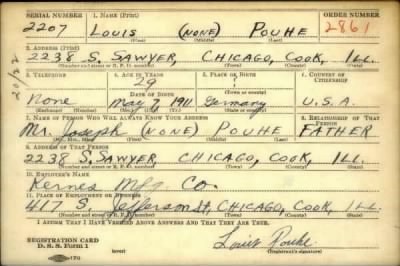 SERIAL NUMBER 1. NAME (Print) ORDER NUMBER
2207 LOUIS (NONE) POUHE 2861
(First) (Middle) (Last)
2. ADDRESS (Print)
2238 S. SAWYER, CHICAGO, COOK, ILL.
(Number and street or R. F. D. number) (Town) (County) (State)
3. TELEPHONE 4. AGE IN YEARS 5. PLACE OF BIRTH 6. COUNTRY OF CITIZENSHIP
29
None May 7, 1911 Germany U.S.A.
7. NAME OF PERSON WHO WILL ALWAYS KNOW YOUR ADDRESS 8. RELATIONSHIP OF THAT PERSON
Mr. Joseph (NONE) POUHE FATHER
(Mr., Mrs., Miss) (First) (Middle) (Last)
9. ADDRESS OF THAT PERSON
2238 S. SAWYER, CHICAGO, COOK, ILL.
(Number and street or R. F. D. number) (Town) (County) (State)
10. EMPLOYER'S NAME
Kernes Mfg. Co.
11. PLACE OF EMPLOYMENT OR BUSINESS
417 S. Jefferson St, CHICAGO, COOK, ILL.
(Number and street or R. F. D. number) (Town) (County) (State)
I AFFIRM THAT I HAVE VERIFIED ABOVE ANSWERS AND THAT THEY ARE TRUE.
REGISTRATION CARD
D. S. S. Form 1 (over) Louis Pouhe
(Registrant's signature)